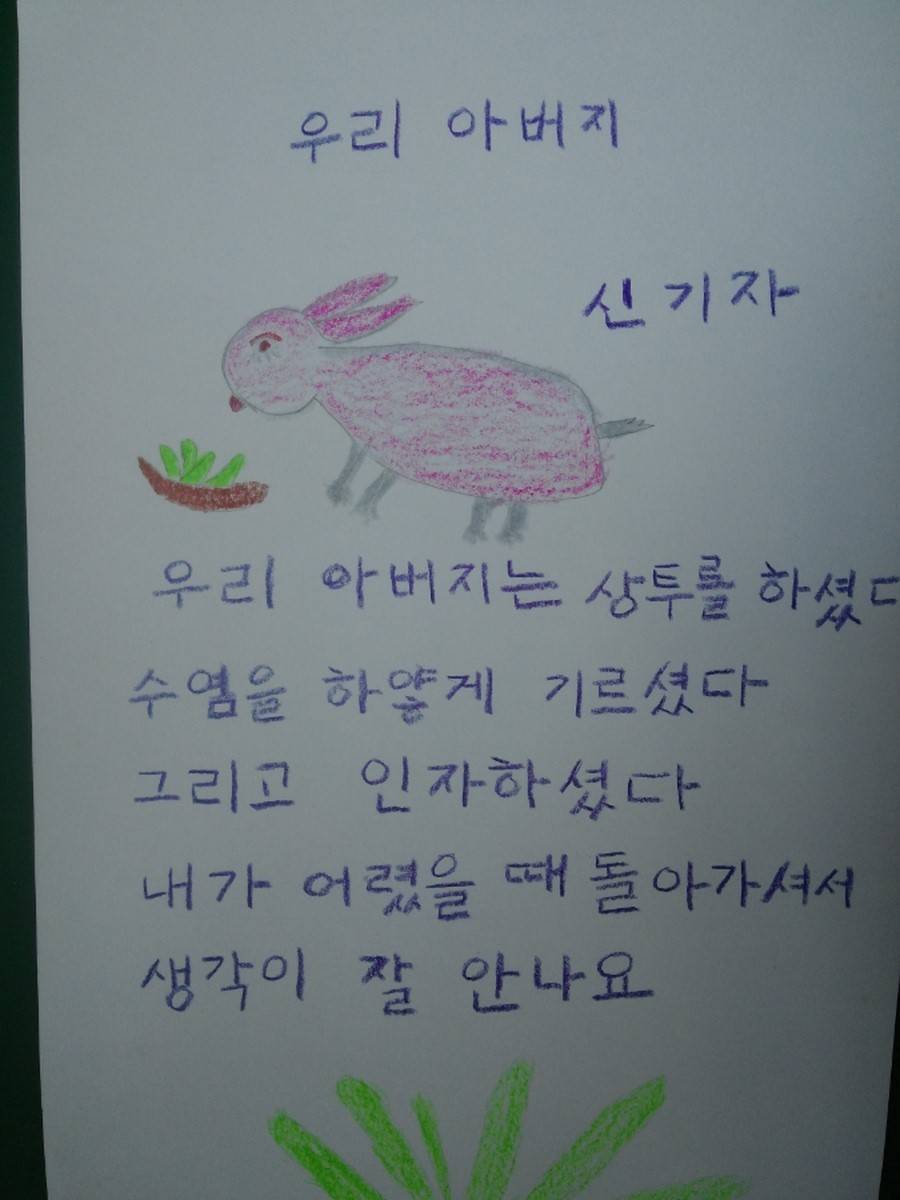 우리 아버지
신기자
우리 아버지는 상투를 하셨다
수염을 하얗게 기르셨다
그리고 인자하셨다
내가 어렸을 때 돌아가셔서
생각이 잘 안나요